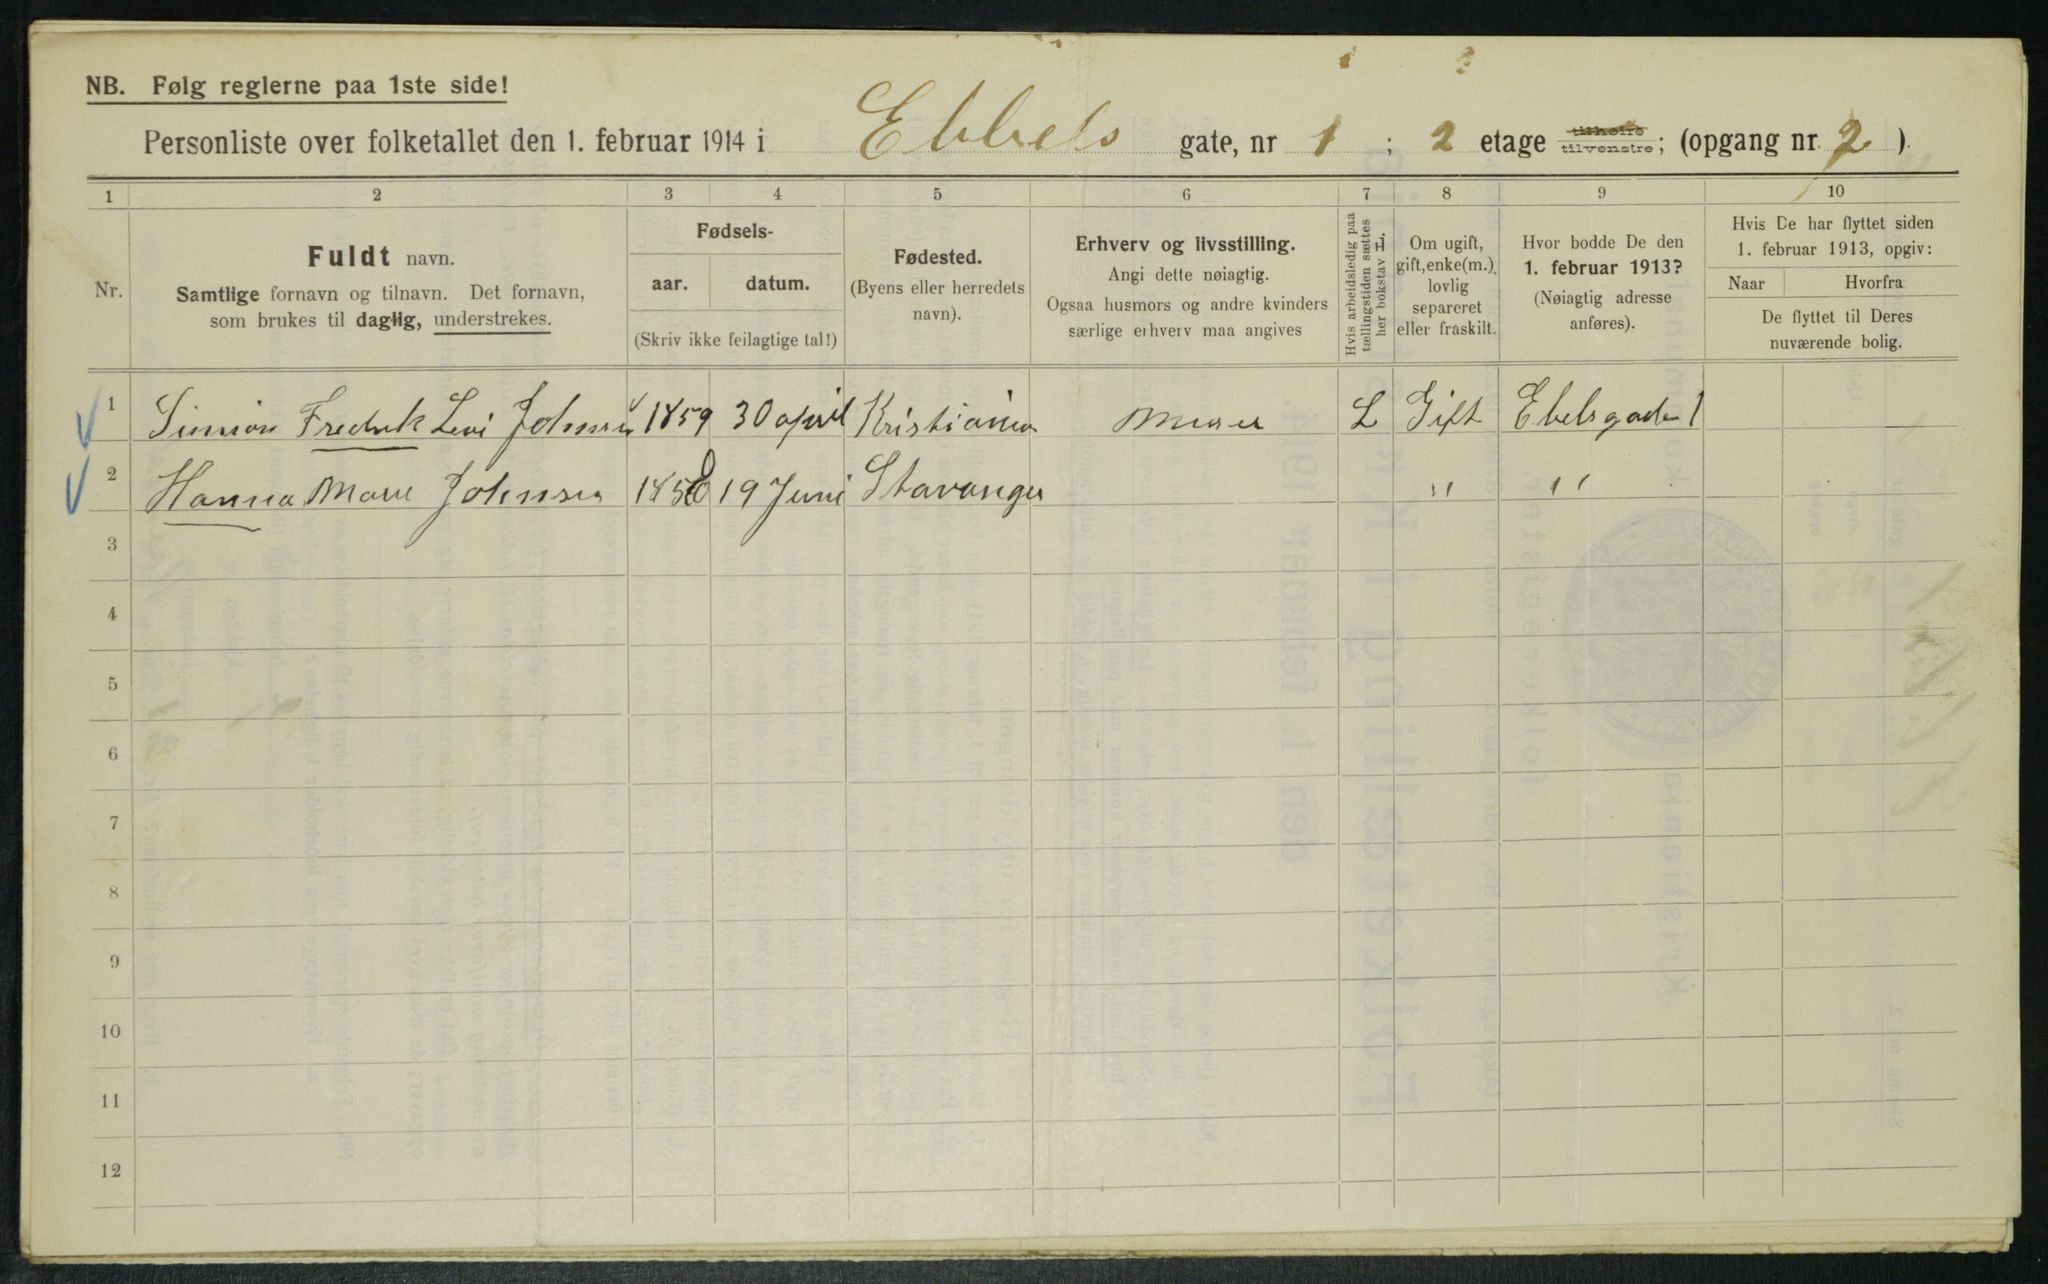 NB. Følg reglerne paa 1ste side!
Personliste over folketallet den 1. februar 1914 i Ebbels gate, nr 1 ; 2 etage tilhøire tilvenstre; (opgang nr. 2 ).
1 2 3 4 5 6 7 8 9 10
Nr.
Fuldt navn.
Samtlige fornavn og tilnavn. Det fornavn,
som brukes til daglig, understrekes.
Fødsels-
aar. datum.
(Skriv ikke feilagtige tal!)
Fødested.
(Byens eller herredets
navn).
Erhverv og livsstilling.
Angi dette nøiagtig.
Ogsaa husmors og andre kvinders
særlige erhverv maa angives
Hvis arbeidsledig paa
tællingstiden sættes
her bokstav L.
Om ugift,
gift, enke(m.),
lovlig
separeret
eller fraskilt.
Hvor bodde De den
1. februar 1913?
(Nøiagtig adresse
anføres).
Hvis De har flyttet siden
1. februar 1913, opgiv:
Naar Hvorfra
De flyttet til Deres
nuværende bolig.
1 Simion Fredrik Levi Johnsen 1859 30 april Kristiania Murer L Gift Ebelsgade 1
2 Hanna Marie Johnsen 19 Juni Stavanger " "
3
4
5
6
7
8
9
10
11
12